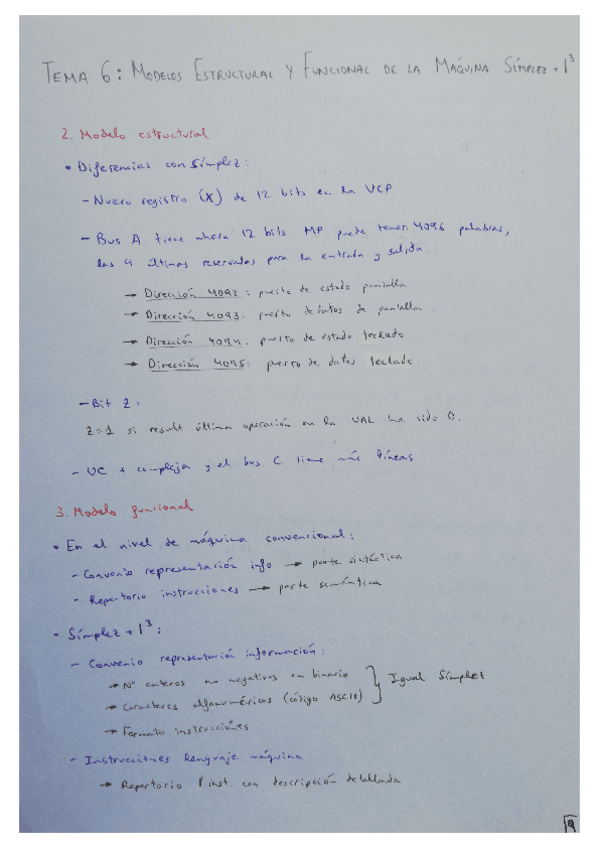 TEMA 6: MODELOS ESTRUCTURAL Y FUNCIONAL DE LA MÁQUINA SÍMPLEZ + I³
2. Modelo estructural
• Diferencias con Símplez:
- Nuevo registro (X) de 12 bits en la UCP
- Bus A tiene ahora 12 bits. MP puede tener 4096 palabras,
las 4 últimas reservadas para la entrada y salida.
→ Dirección 4092: puerto de estado pantalla
→ Dirección 4093: puerto de datos de pantalla
→ Dirección 4094: puerto de estado teclado
→ Dirección 4095: puerto de datos teclado
- Bit Z:
Z=1 si result última operación en la UAL ha sido 0.
- UC + compleja y el bus C tiene más líneas
3. Modelo funcional
• En el nivel de máquina convencional:
- Convenio representación info → parte sintáctica
- Repertorio instrucciones → parte semántica
• Símplez + I³:
- Convenio representación información:
→ Nº enteros no negativos en binario
→ Caracteres alfanuméricos (código ASCII) } Igual Símplez
→ Formato instrucciones
- Instrucciones lenguaje máquina
→ Repertorio inst. con descripción detallada